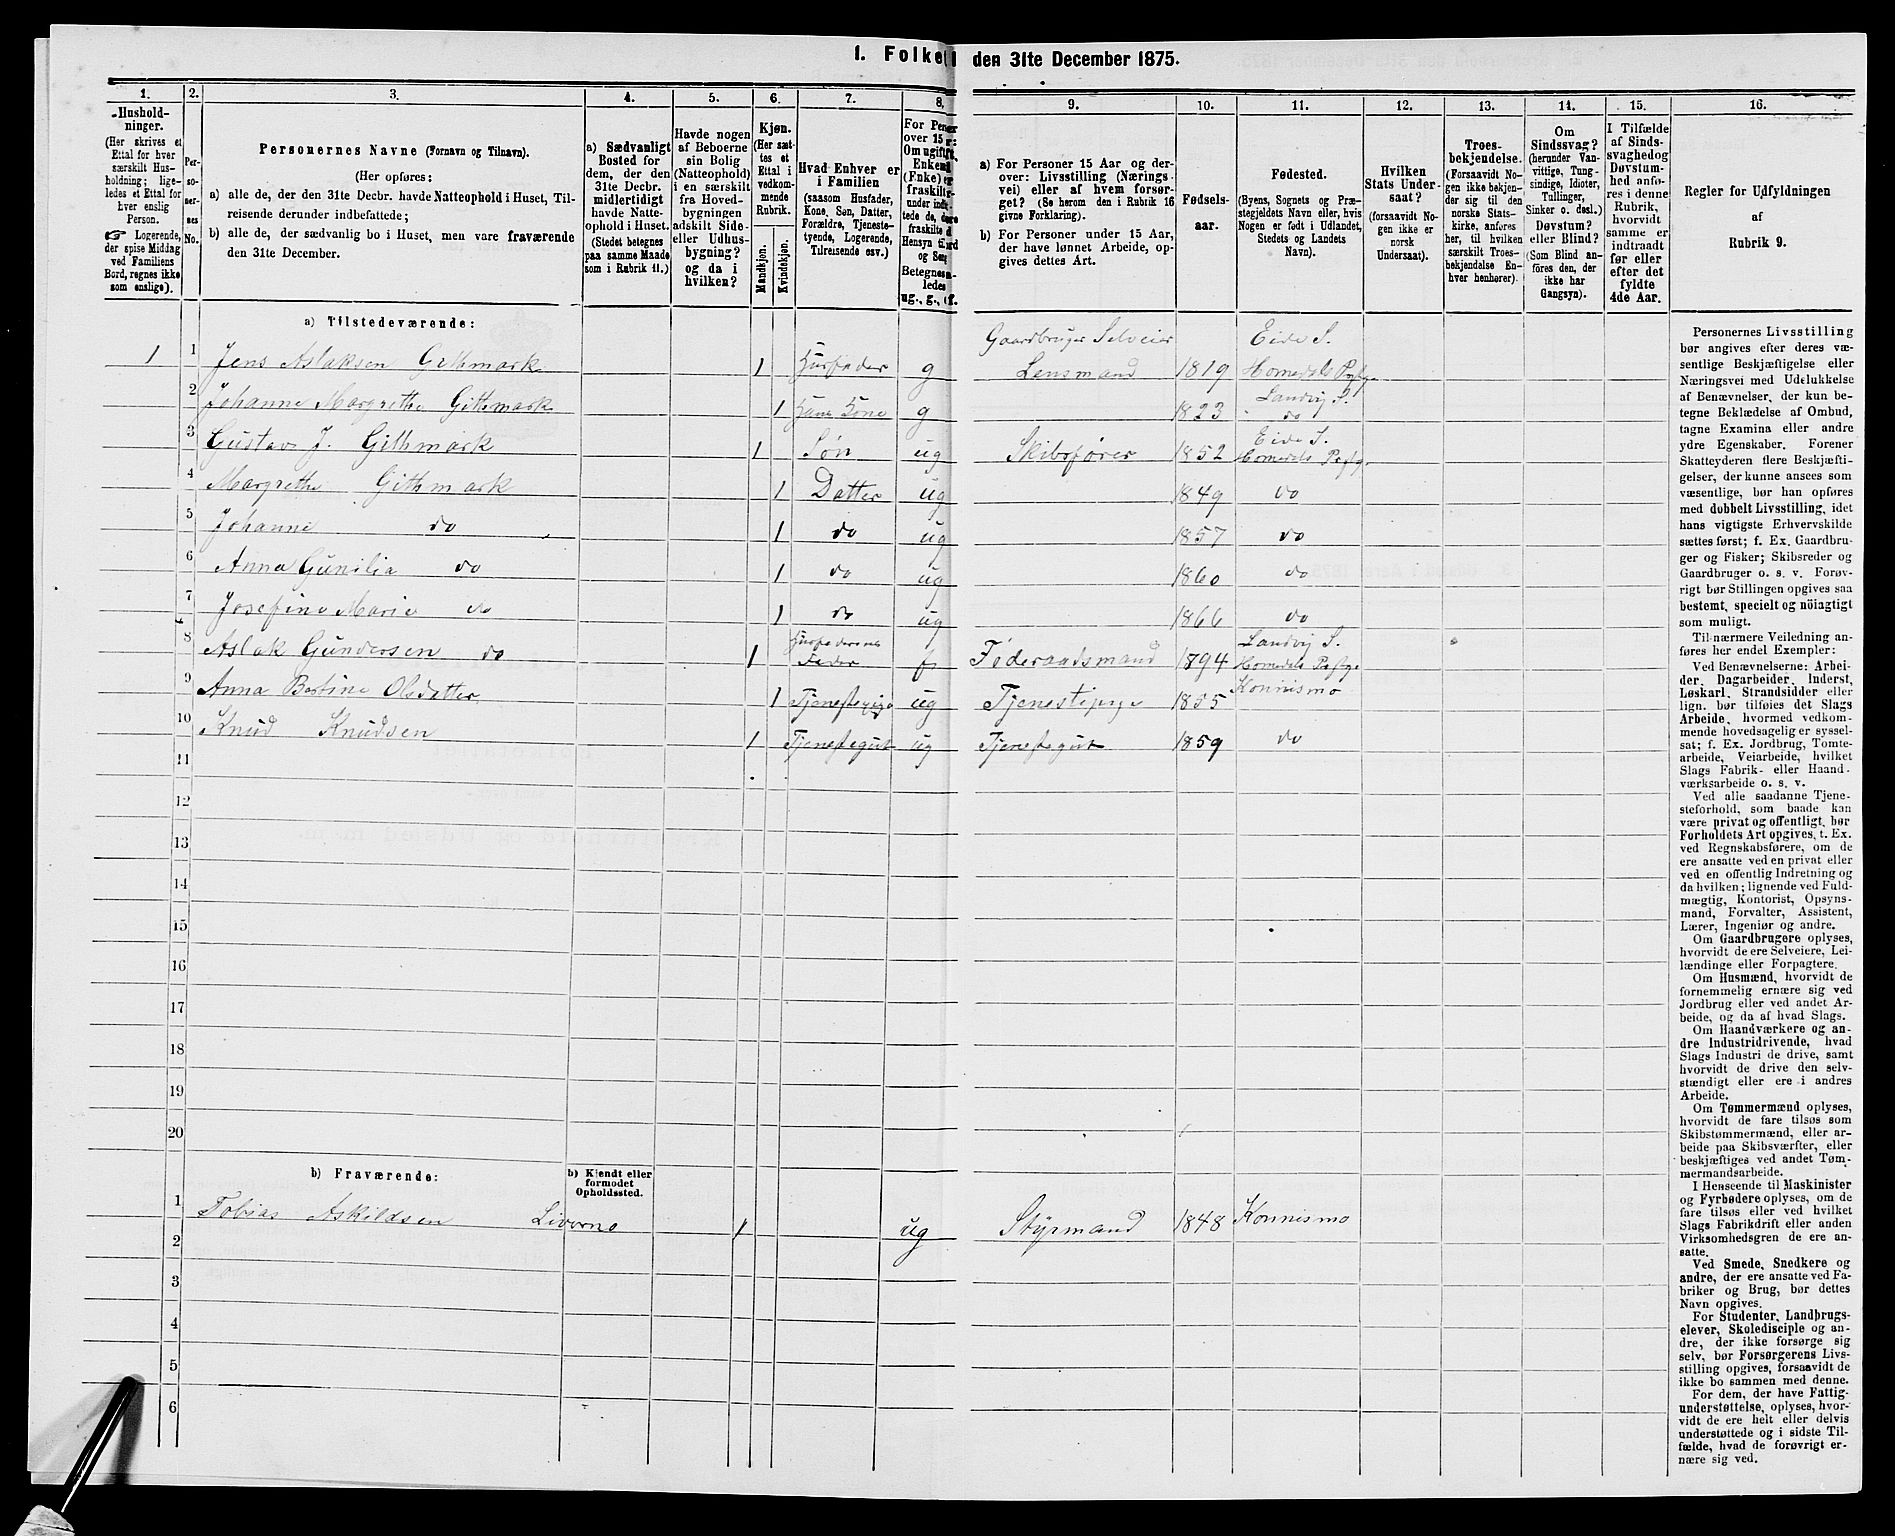 1. Folke
den 31te December 1875.
1.
Hushold-
ninger.
(Her skrives et
Ettal for hver
særskilt Hus-
holdning; lige-
ledes et Ettal for
hver enslig
Person.
☞ Logerende,
der spise Middag
ved Familiens
Bord, regnes ikke
som enslige).
2.
Per-
so-
ner-
nes
No.
3.
Personernes Navne (Fornavn og Tilnavn).
(Her opføres:
a) alle de, der den 31te Decbr. havde Natteophold i Huset, Til-
reisende derunder indbefattede;
b) alle de, der sædvanlig bo i Huset, men vare fraværende
den 31te December.
4.
a) Sædvanligt
Bosted for
dem, der den
31te Decbr.
midlertidigt
havde Natte-
ophold i Huset.
(Stedet betegnes
paa samme Maade
som i Rubrik 11.)
5.
Havde nogen
af Beboerne
sin Bolig
(Natteophold)
i en særskilt
fra Hoved-
bygningen
adskilt Side-
eller Udhus-
bygning?
og da i
hvilken?
6.
Kjøn.
(Her sæt-
tes et
Ettal i
vedkom-
mende
Rubrik.
Mandkjøn.
Kvindekjøn.
7.
Hvad Enhver er
i Familien
(saasom Husfader,
Kone, Søn, Datter,
Forældre, Tjeneste-
tyende, Logerende,
Tilreisende osv.)
8.
For Per
over 15
Om ugift
Enkem
(Enke)
fraskilt
under
tede de,
fraskilte
Hensyn
og
Betegnes
ledes
ug., g.,
9.
a) For Personer 15 Aar og der-
over: Livsstilling (Nærings-
vei) eller af hvem forsør-
get? (Se herom den i Rubrik 16
givne Forklaring).
b) For Personer under 15 Aar,
der have lønnet Arbeide, op-
gives dettes Art.
10.
Fødsels-
aar.
11.
Fødested.
(Byens, Sognets og Præ-
stegjeldets Navn eller, hvis
Nogen er født i Udlandet,
Stedets og Landets
Navn).
12.
Hvilken
Stats Under-
saat?
(forsaavidt No-
gen ikke er
norsk
Undersaat).
13.
Troes-
bekjendelse.
(Forsaavidt No-
gen ikke bekjen-
der sig til den
norske Stats-
kirke, anføres
her, til hvilken
særskilt Troes-
bekjendelse En-
hver henhører).
14.
Om
Sindssvag?
(herunder Van-
vittige, Tung-
sindige, Idioter,
Tullinger,
Sinker o. desl.)
Døvstum?
eller Blind?
(Som Blind an-
føres den, der
ikke har
Gangsyn).
15.
I Tilfælde
af Sinds-
svaghed og
Døvstum-
hed anfø-
res i denne
Rubrik,
hvorvidt
samme er
indtraadt
før eller
efter det
fyldte
4de Aar.
16.
Regler for Udfyldningen
af
Rubrik 9.
a) Tilstedeværende:
1 1 Jens Aslaksen Githmark 1 Husfader g Gaardbruger Selveier Lensmand 1819 Eide S. Homedals Prstg.
2 Johanne Margrethe Githmark 1 Hans Kone g 1823 Landvig S. do
3 Gustav J. Githmark 1 Søn ug Skibsfører 1852 Eide S. Homedals Prstg.
4 Margrethe Githmark 1 Datter ug 1849 do
5 Johanne do 1 do ug 1857 do
6 Anna Gunilia do 1 do ug 1860 do
7 Josefine Marie do 1 do ug 1866 do
8 Aslak Gundersen do 1 Husfaderens Fader Føderaadsmand 1894 Landvig S. Homedals Prstg.
9 Anna Bertine Olsdatter 1 Tjenestepige ug Tjenestepige 1855 Konnismo
10 Knud Knudsen 1 Tjenestegut ug Tjenestegut 1859 do
11
12
13
14
15
16
17
18
19
20
b) Fraværende:
b) Kjendt eller
formodet
Opholdssted.
1 Tobias Askildsen Livorno 1 ug Styrmand 1848 Konnismo
2
3
4
5
6
Personernes Livsstilling
bør angives efter deres væ-
sentlige Beskjæftigelse eller
Næringsvei med Udelukkelse
af Benævnelser, der kun be-
tegne Beklædelse af Ombud,
tagne Examina eller andre
ydre Egenskaber. Forener
Skatteyderen flere Beskjæfti-
gelser, der kunne ansees som
væsentlige, bør han opføres
med dobbelt Livsstilling, idet
hans vigtigste Erhvervskilde
sættes først; f. Ex. Gaardbru-
ger og Fisker; Skibsreder og
Gaardbruger o. s. v. Forøv-
rigt bør Stillingen opgives saa
bestemt, specielt og nøiagtigt
som muligt.
Til nærmere Veiledning an-
føres her endel Exempler:
Ved Benævnelserne: Arbei-
der, Dagarbeider, Inderst,
Løskarl, Strandsidder eller
lign. bør tilføies det Slags
Arbeide, hvormed vedkom-
mende hovedsagelig er syssel-
sat; f. Ex. Jordbrug, Tomte-
arbeide, Veiarbeide, hvilket
Slags Fabrik- eller Haand-
værksarbeide o. s. v.
Ved alle saadanne Tjene-
steforhold, som baade kan
være privat og offentligt, bør
Forholdets Art opgives, t. Ex.
ved Regnskabsførere, om de
ere ansatte ved en privat eller
ved en offentlig Indretning og
da hvilken; lignende ved Fuld-
mægtig, Kontorist, Opsyns-
mand, Forvalter, Assistent,
Lærer, Ingeniør og andre.
Om Gaardbrugere oplyses,
hvorvidt de ere Selveiere, Lei-
lændinge eller Forpagtere.
Om Husmænd, hvorvidt de
fornemmelig ernære sig ved
Jordbrug eller ved andet Ar-
beide, og da af hvad Slags.
Om Haandværkere og an-
dre Industridrivende, hvad
Slags Industri de drive, samt
hvorvidt de drive den selv-
stændigt eller ere i andres
Arbeide.
Om Tømmermænd oplyses,
hvorvidt de fare tilsøs som
Skibstømmermænd, eller ar-
beide paa Skibsværfter, eller
beskjæftiges ved andet Tøm-
mermandsarbeide.
I Henseende til Maskinister
og Fyrbødere oplyses, om de
fare tilsøs eller ved hvilket
Slags Fabrikdrift eller anden
Virksomhedsgren de ere an-
satte.
Ved Smede, Snedkere og
andre, der ere ansatte ved Fa-
briker og Brug, bør dettes
Navn opgives.
For Studenter, Landbrugs-
elever, Skoledisciple og an-
dre, der ikke forsørge sig
selv, bør Forsørgerens Livs-
stilling opgives, forsaavidt de
ikke bo sammen med denne.
For dem, der have Fattig-
understøttelse, oplyses, hvor-
vidt de ere helt eller delvis
understøttede og i sidste Til-
fælde, hvad de forøvrigt er-
nære sig ved.